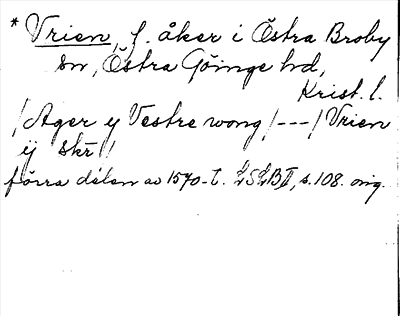 * Vrien, f. åker i Östra Broby
sn, Östra Göinge hd,
Krist. l.
/Ager y Vestre wong/---/Vrien
ij skr/
förra delen av 1570-t. LSLBII, s. 108. orig.